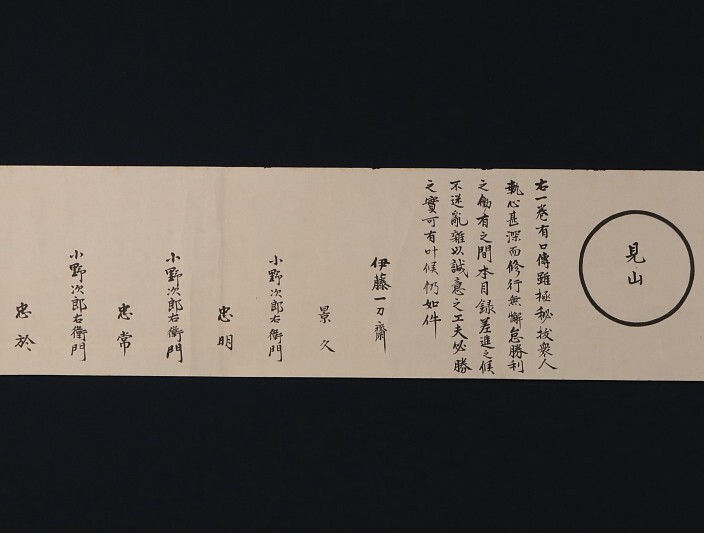 見山
右一巻有口傳雖極秘抜衆人
執心甚深而修行無懈怠勝利
之働有之間本目録差進之候
不迷乱雑以誠意之工夫必勝
之實可有叶候仍如件
伊藤一刀齋
景久
小野次郎右衛門
忠明
小野次郎右衛門
忠常
小野次郎右衛門
忠於